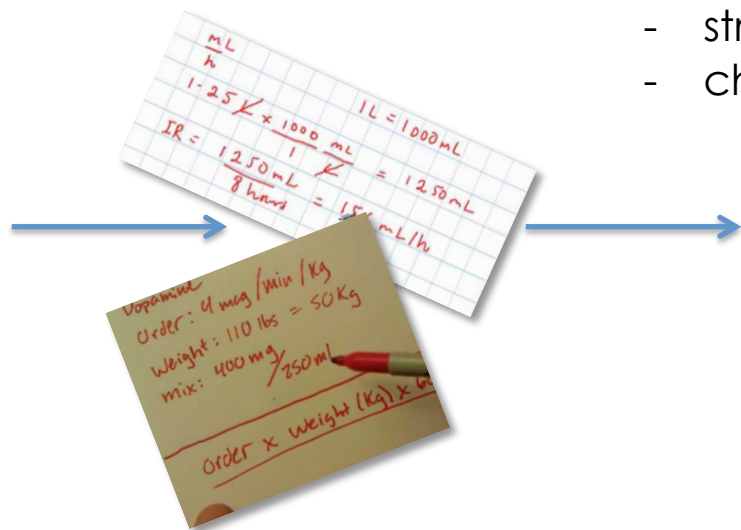 - str
- ch
mL
h
1L = 1000mL
1.25 L x 1000 mL
1 L
= 1250mL
IR = 1250mL
8 hours
= 15 mL/h
Dopamine
Order: 4 mcg/min/Kg
Weight: 110 lbs = 50Kg
mix: 400mg/250ml
Order x Weight (Kg) x 6